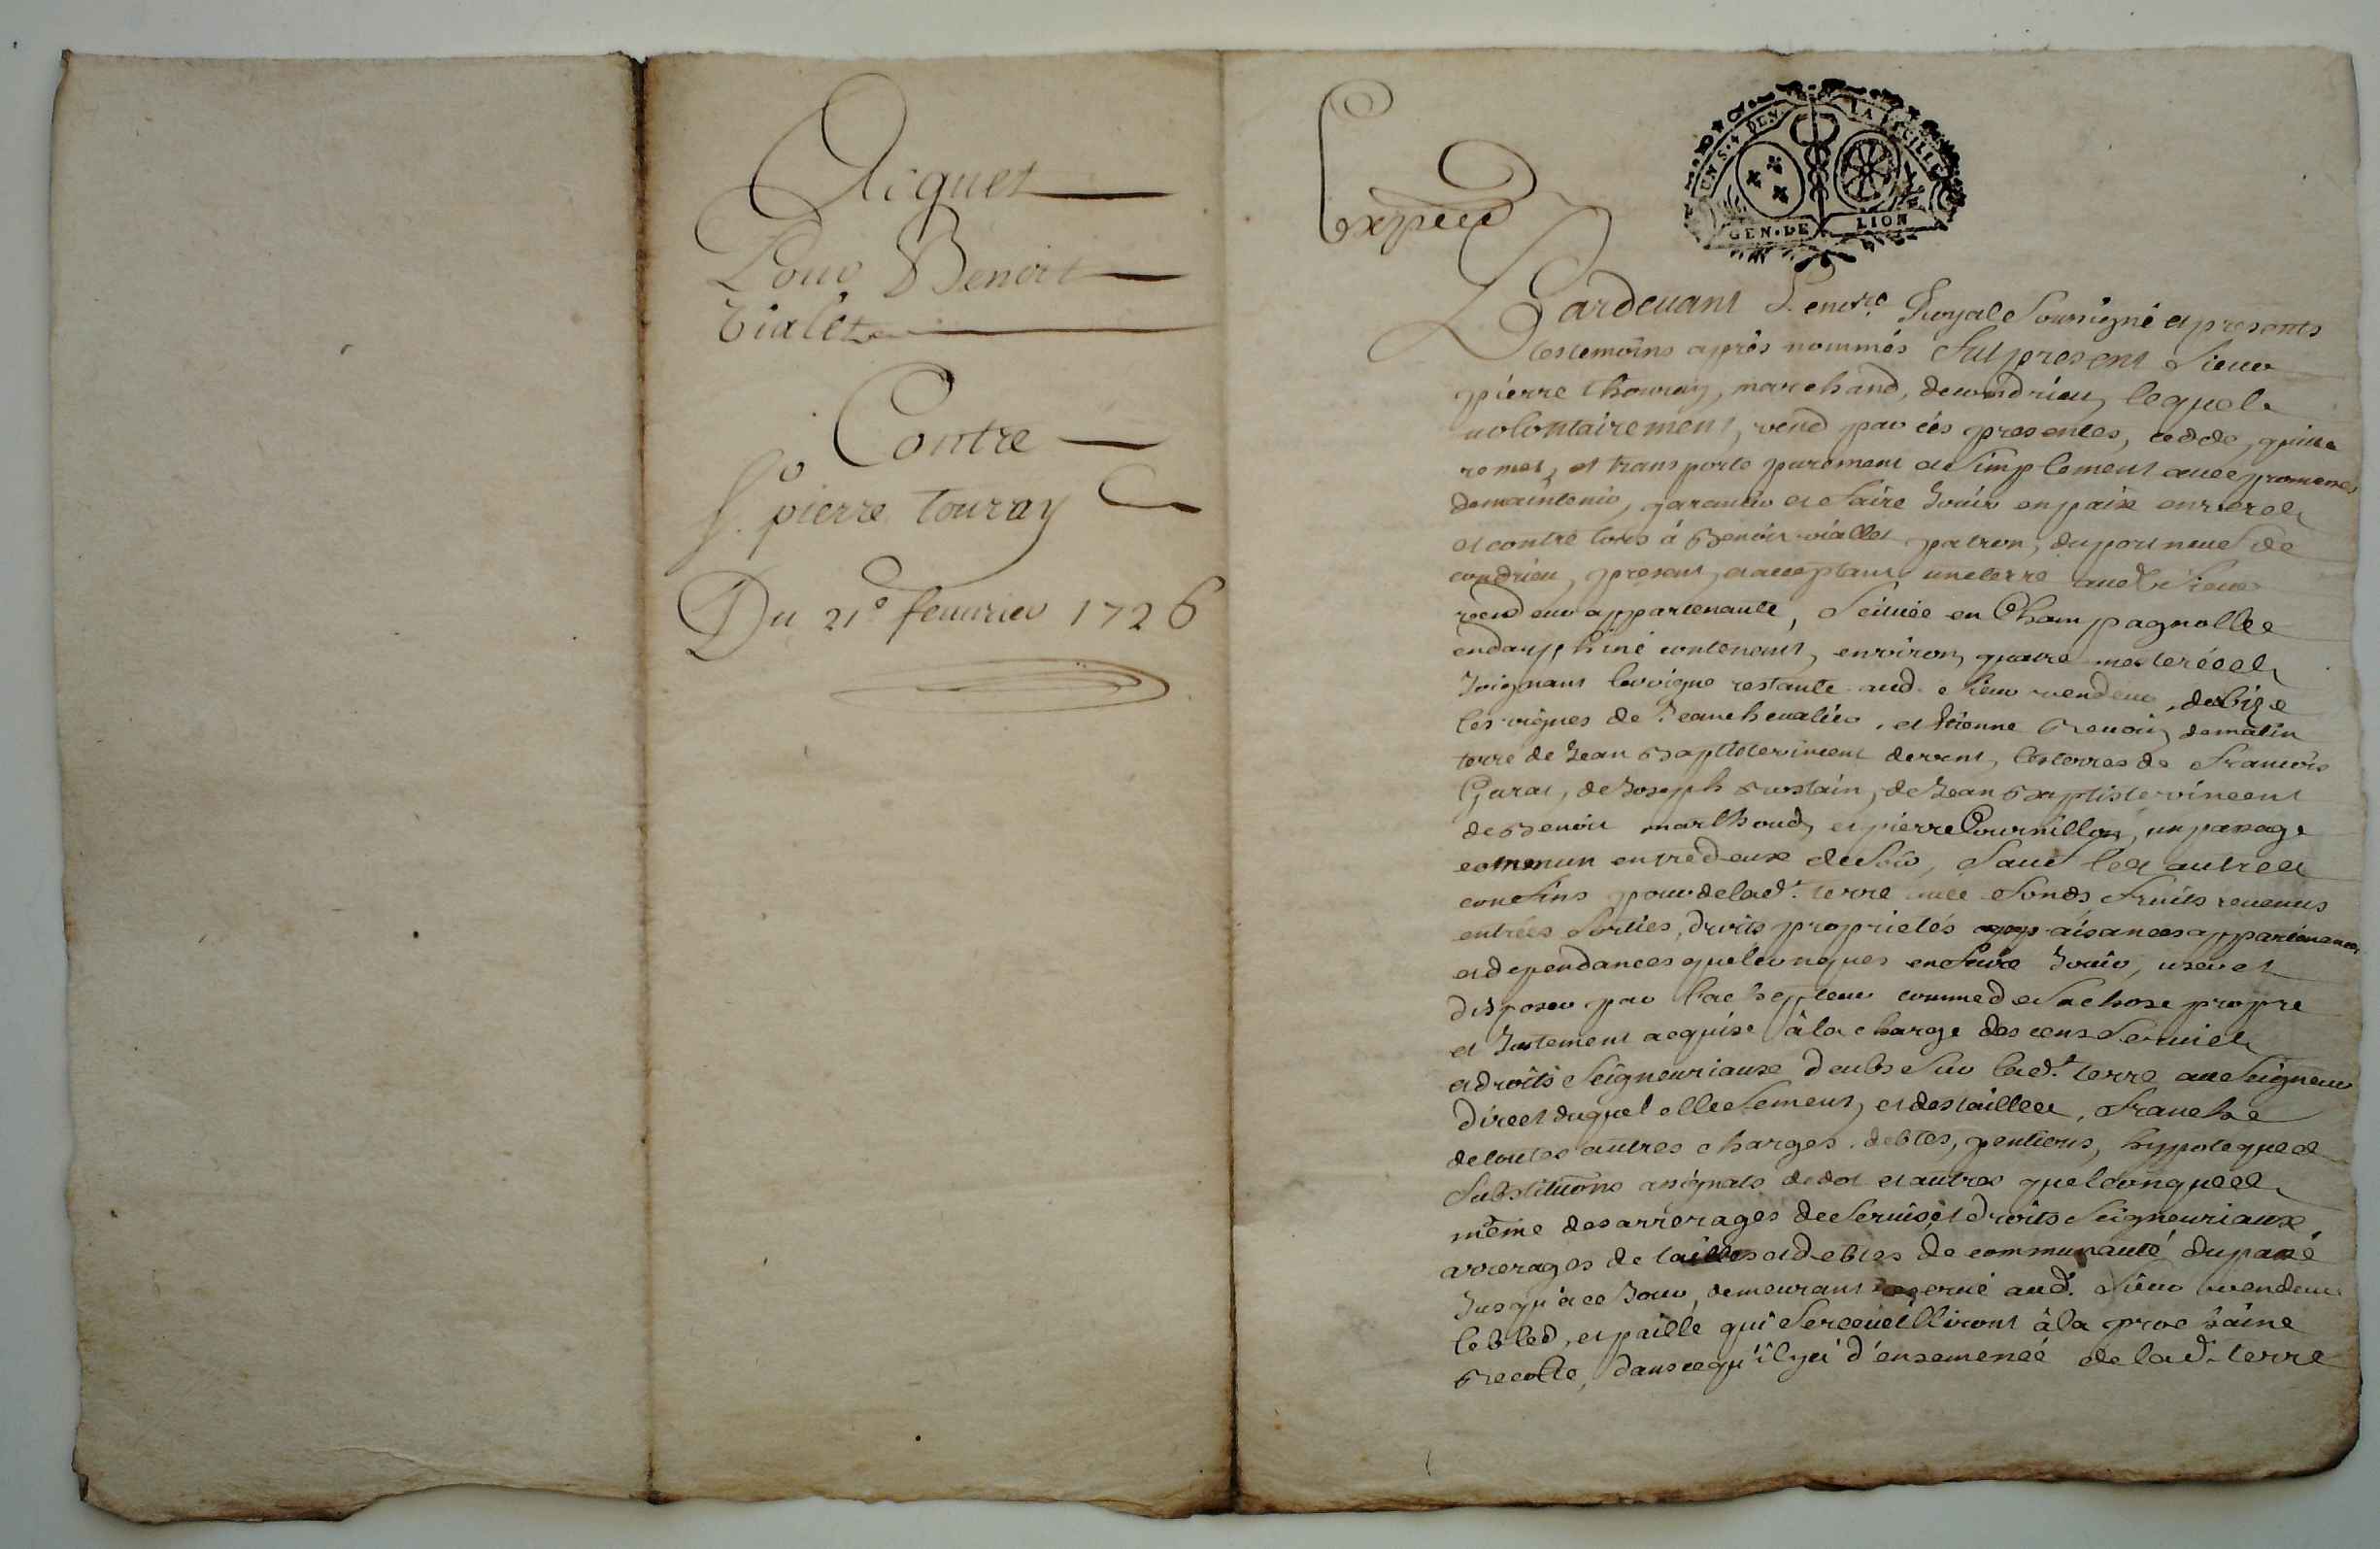 Acquet
Pour Benoit
Vialet
Contre
Sr. pierre Touray
Du 21e feuurier 1726
Expedié
UN S. DEN. LA FEUILLE
GEN. DE LION
Pardeuant Royal Soussigné et presents
les temoins aprés nommés fut present Sieur
pierre thouray, marchand, de condrieu, lequel
volontairement, vend par cés presentes, cedde, quitte
remet, et transporte purement et simplement auec promesse
de maintenir, garantir et faire Jouir en paix enverse
et contre tous á Benoit viallet patron, du port neuf de
condrieu, present, et acceptant, une terre aud. Sieur
vendeur appartenante, Scituée en Champagnolle
en dauphiné contenant, environ, quatre
Joignant la vigne restante aud. Sieur vendeur, de bize
les vignes de Jean cheualier, et Etienne de matin
terre de Jean Baptiste vincent de vent, les terres de francois
Garat, de Joseph de Jean Baptiste vincent
de Benoit marthoud, et pierre un passage
commun entredeux de Soir, Sauf les autres
confins pour de lad.t terre auec fonds, fruits revenus
entrées Sorties, droits proprietés aisances appartenances
et dependances quelconques en faire Jouir, user et
disposer par l'achepteur comme de Sa chose propre
et Justement acquise á la charge des cens Servis
et droits Seigneuriaux deubs Sur lad.t terre au Seigneur
direct duquel elle Se meut, et des tailles, franche
de toutes autres charges. debtes, pentions, hypoteques
Substitutions assignats de dot et autres quelconques
même des arrerages de Servis et droits Seigneuriaux,
arrerages de tailles et debtes de communauté du passé
Jusqu'á ce Jour, demeurant reservé aud. Sieur vendeur
le bled, et paille qui Se recueilliront á la prochaine
Recolte, dans ce qu'il y á d'ensemencé de lad. terre